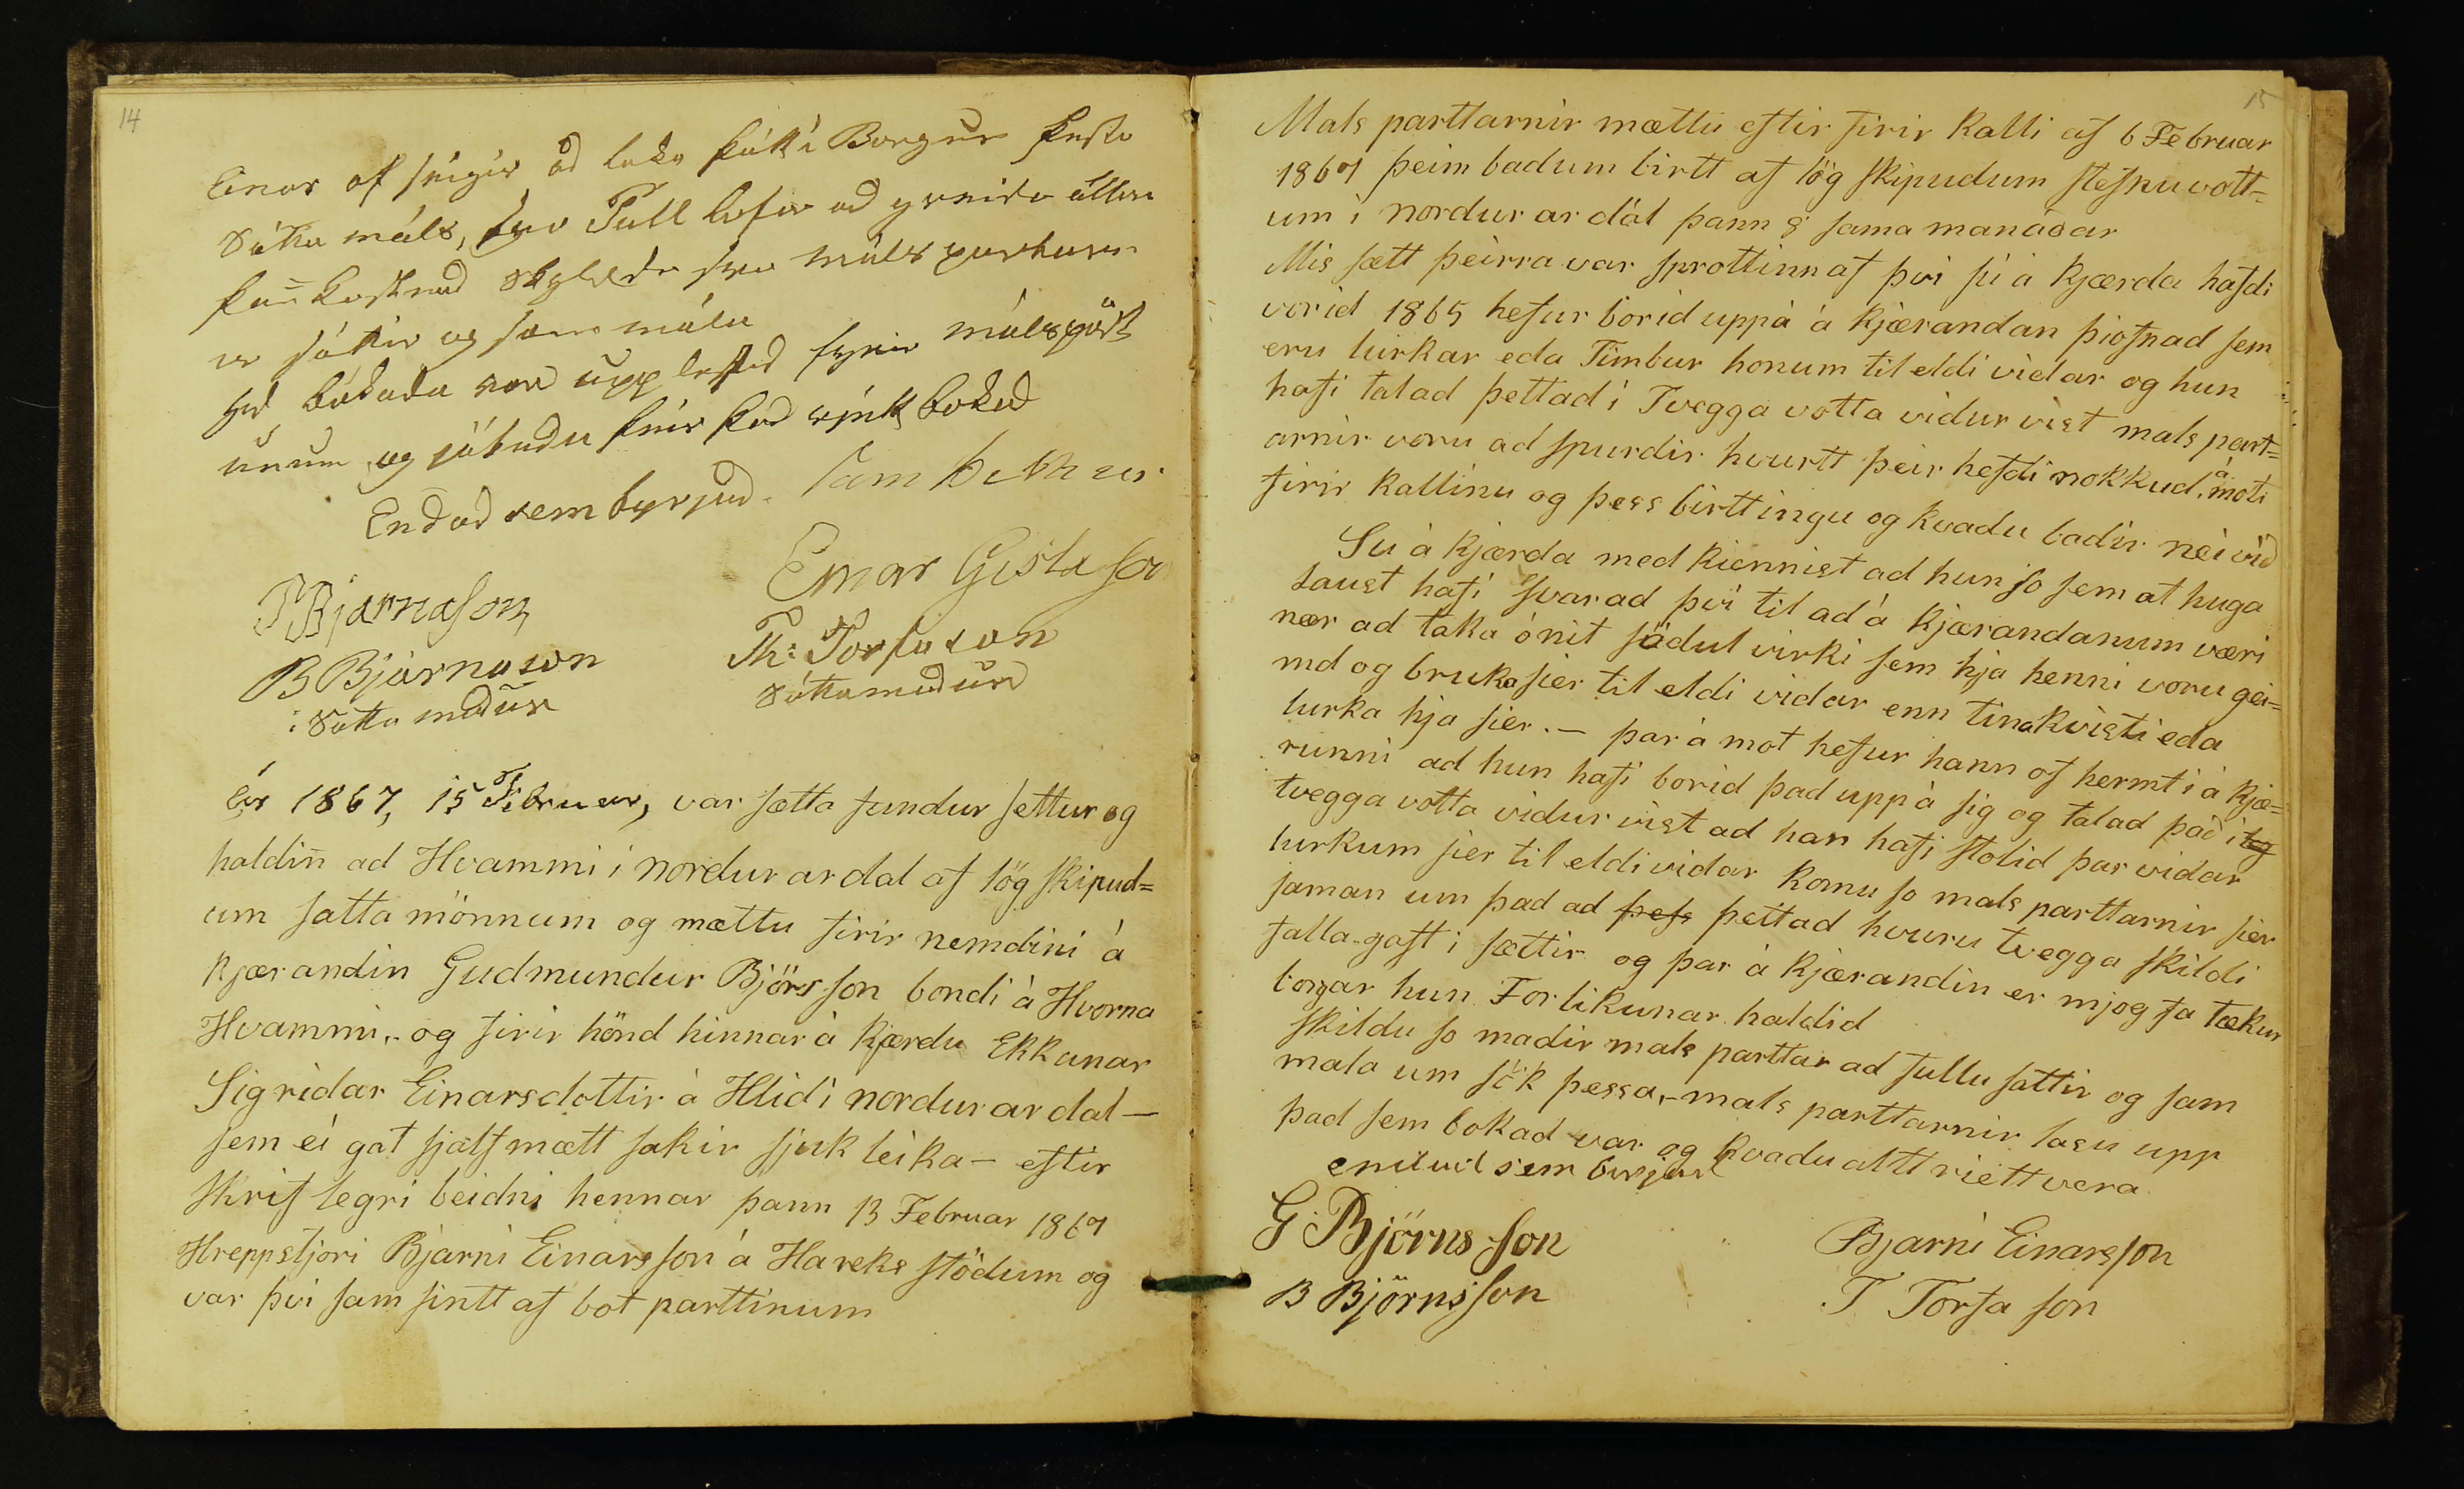 14
Einar af seigir ad taka þátt í Borgun þessa
Sátta máls, svo Páll lofar ad greida allan
þañ kostnad skyldu svo málspartarn
ir sáttir og samm mála
Hid bókada var upplesid fyrir málspört
unum og játudu þeir þad rjett bókad
Endad sem byrjad.
Einar Gislason
PBjarnason
B Bjarnason
Th: Torfason
Sáttamadur
Sáttamadur
Ár 1867, 15 Februar, var sætta fundur settur og
haldiñ ad Hvammi i nordur ardal af lög skipud=
um satta mönnum og mættu firir nemdini á
kjærandin Gudmundur Björsson bondi á Hvorna
Hvammi,- og firir hönd hinnar á kjærdu Ekkunar
Sigridar Einarsdottir á Hlid i nordurardal —
sem ei gat sjálf mætt sakir sjukleika — eftir
skriflegri beidni hennar þann 13 Februar 1867
Hreppstjori Bjarni Einarsson á Hareksstödum og
var þvi sam sintt af bot parttinum
15
Mals parttarnir mættu eftir firir kalli af 6 Februar
1867 þeim badum birtt af lög skipudum stefnuvott=
um i nordur ar dál þann 8 sama manáðar
Mis sætt þeirra var sprottinn af þvi sú á kjærda hafdi
vorid 1865 hefur borid uppá á kjærandan þiofnad sem
eru lurkar eda Timbur honum til eldi vidar og hun
hafi talad þettad i Tvegga votta vidur vist mals part=
arnir voru ad spurdir hvurtt þeir hefdi nokkud á moti
firir kallinu og þess birttingu og kvadu badir nei vid
Su á kjærda med kiennist ad hun so sem at huga
laust hafi svarad þvi til ad á kjærandanum væri
nær ad taka ónit södul virki sem hja henni voru gei=
md og bruka sier til eldi vidar enn tina kvisti eda
lurka hja sier. — þar á mot hefur hann of hermt i á kjæ=
runni ad hun hafi borid þad uppá sig og talad það i og
tvegga votta vidur vist ad han hafi stolid þar vidar
lurkum sier til eldividar komu so mals parttarnir sier
saman um þad ad þess þettad hvuru tvegga skildi
falla-gast i sættir og þar á kjærandin er mjog fa tækur
borgar hun Forlikunar haldid
skildu so madir mals parttar ad fullu sattir og sam
mala um sök þessa,- mals parttarnir lasu upp
þad sem bokad var og kvadu altt riett vera
endad sem birjad
G Björnsson
Bjarni Einarsson
B Björnsson
T Torfason